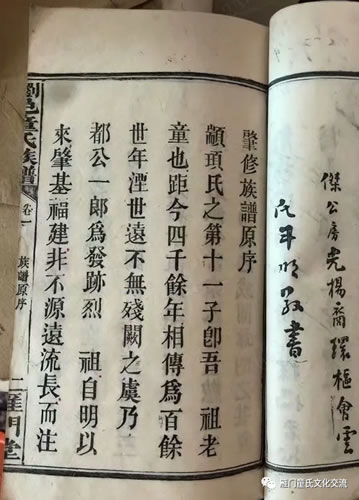 傑公房 楊裔環樞會雲
肇修族譜原序
顓頊氏之第十一子卽吾 祖老
童也距今四千餘年相傳為百餘
世年湮世遠不無殘闕之虞乃
都公一郎為發跡烈 祖自明以
來肇基福建非不源遠流長而注
邑童氏族譜 卷一 族譜原序 雁門堂
雁门童氏文化交流